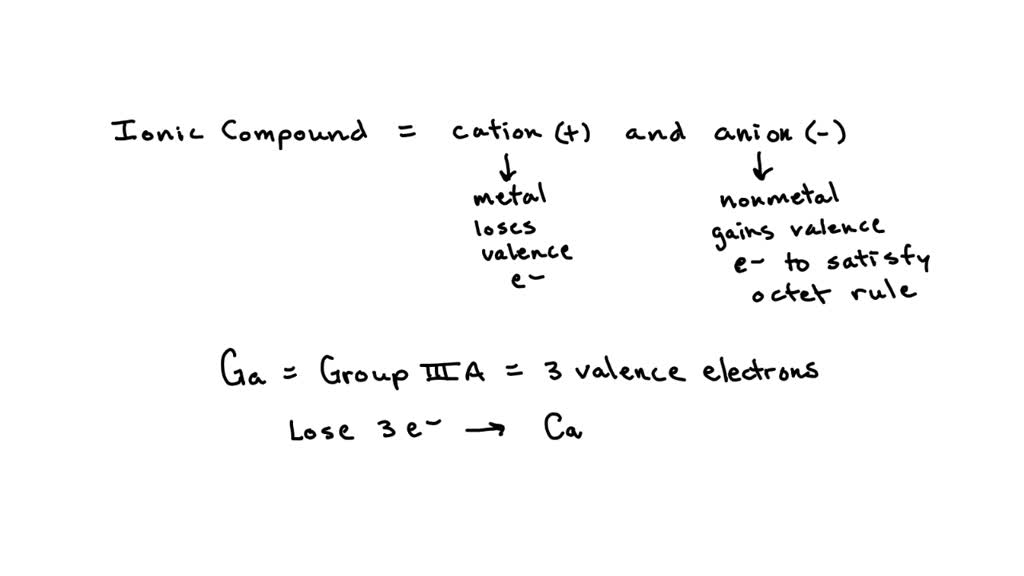 Ionic Compound = cation (+) and anion (-)
↓ ↓
metal nonmetal
loses gains valence
valence e- to satisfy
e- octet rule
Ga = Group IIIA = 3 valence electrons
Lose 3 e- → Ca